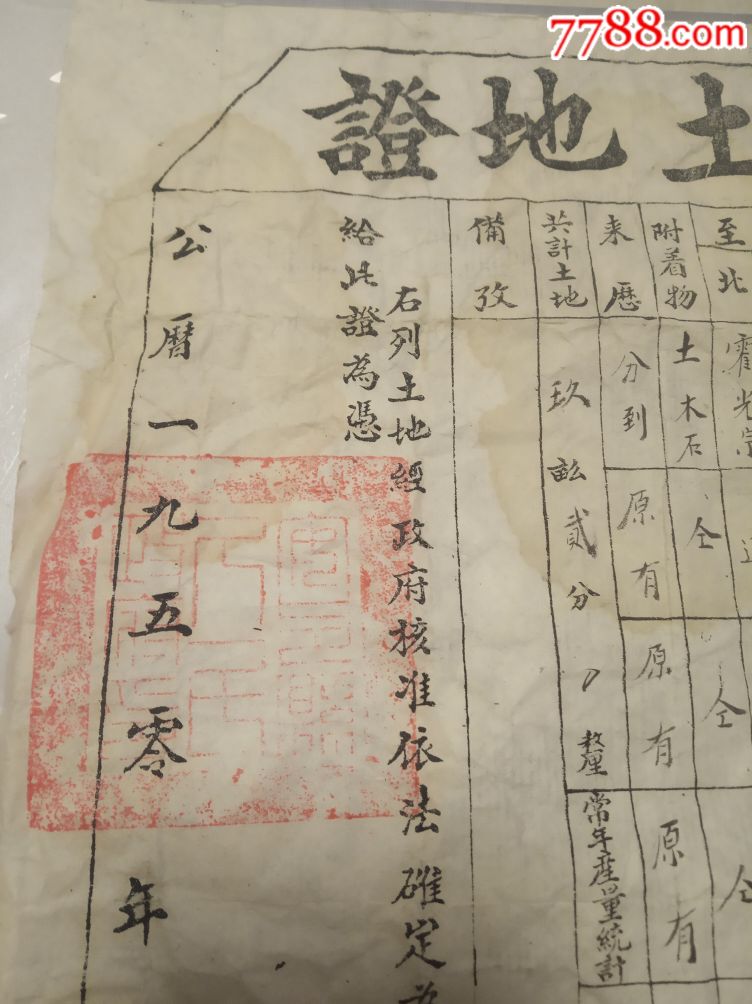 7788.com
土地證
至北
霍光宗
附着物
土木石
仝
仝
仝
来歷
分到
原有
原有
原有
共計土地
玖畝貳分
釐
常年産量統計
備攷
右列土地經政府核准依法確定為
給此證為憑
公曆一九五零年